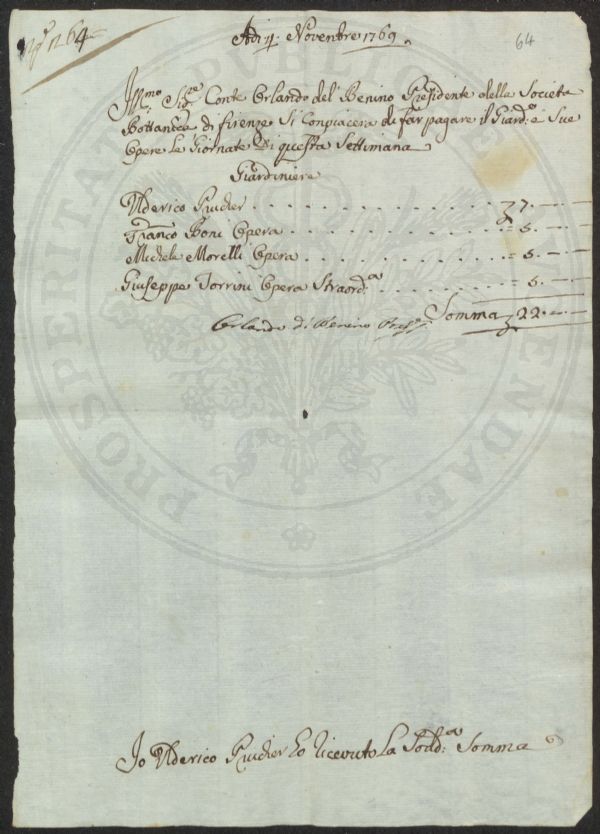 N.° 64
Adi 4. Novembre 1769.
64
Ill.mo Sig.re Conte Orlando del Benino Presidente della Societa
Bottanica di firenze Si Conpiacera di far pagare il Giard:e e Sue
Opere le Giornate di questa Settimana
Giardiniere
Ulderico Prucher . . . . . . . . . . 7. — —
Franco Boni Opera . . . . . . . . . = 5. — —
Michele Morelli Opera . . . . . . . . = 5. — —
Giuseppe Torrini Opera Straord:a . . . . . . = 5. — —
Somma 22. — —
Orlando di Benino Pres.
Io Ulderico Prucher ho riceuto La Sodd:a Somma
PROSPERITATI PUBLICAE AUGENDAE